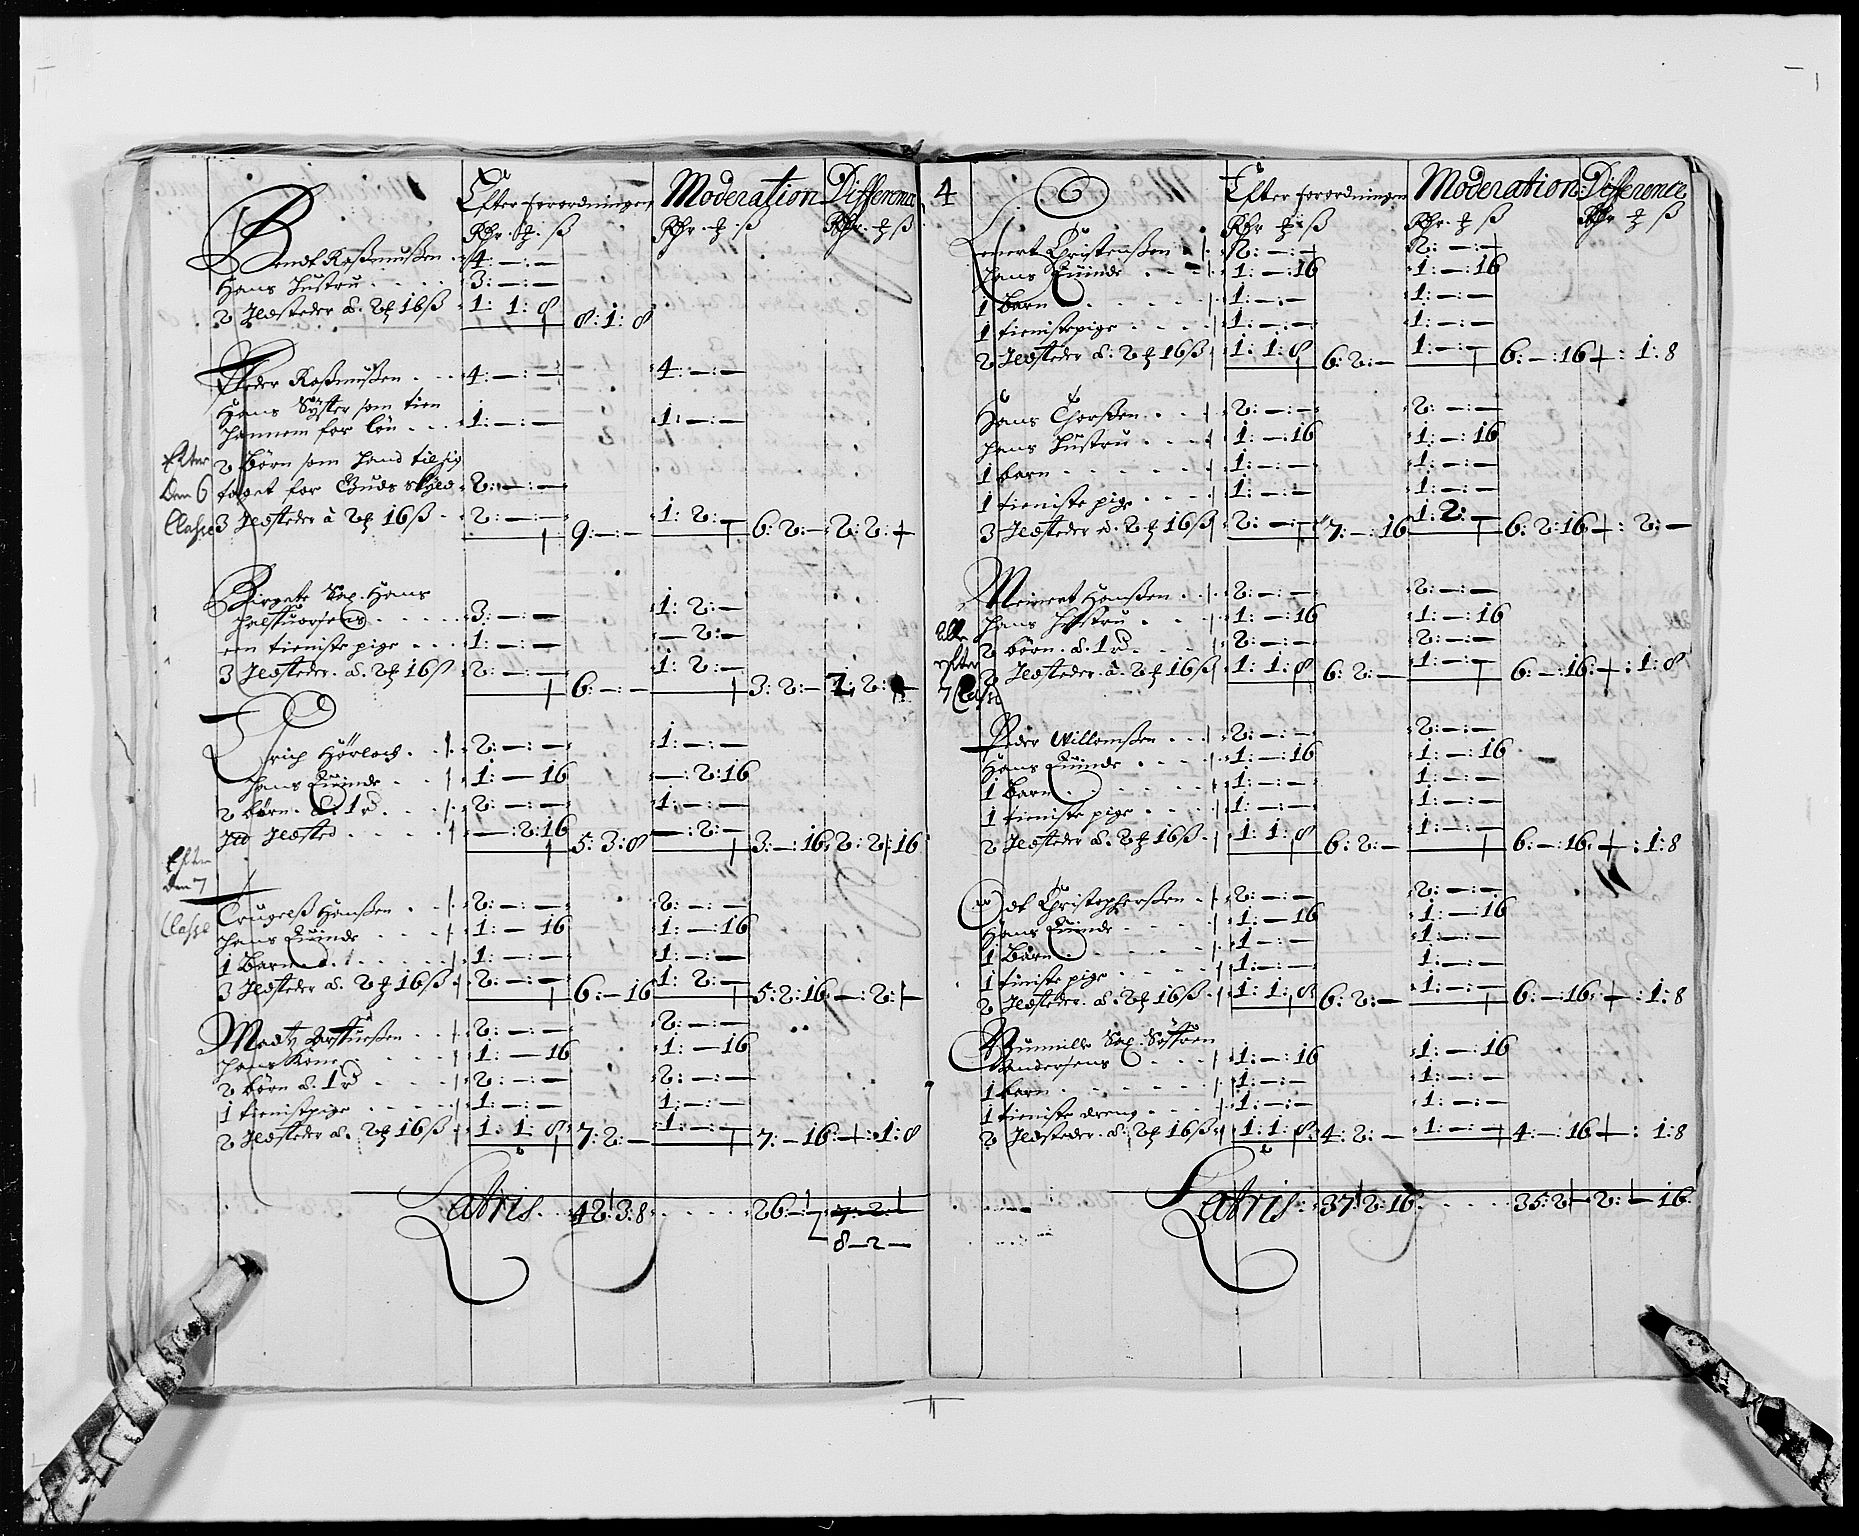 Efter forordningen Moderation Difference
Rdr. ꝑ. ß Rdr. ꝑ. ß Rdr. ꝑ ß
Bendt Raßmußen 4: —: —
Hans Hustru 3: —: —
2 Ildsteder à 2 ꝑ 16 ß 1: 1: 8 8: 1: 8
Peder Raßmußen 4: —: — 4: —: —
Hans Syster som tien
hannem for løn 1: —: — 1: —: —
Efter
den 6
Classe
2 børn som hand til sig
taget for Guds skyld 2: —: —
3 Ildsteder à 2 ꝑ 16 ß 2: —: — 9: —: — 1: 2: — 6: 2: — 2: 2: —
Birgete Sal. Hans
3: —: — 1: 2: —
een tieniste pige 1: —: — — 2: —
3 Ildsteder à 2 ꝑ 16 ß 2: —: — 6: —: — 1: 2: — 3: 2: — 2: —
Erich Hørloch 2: —: — 1: —: —
hans Quinde 1: — 16 —: 2: 16
2 børn à 1 rd 2: —: — 1: —: —
Ildsted —: 2: 16 5: 3: 8 —: 2: — 3: —: 16 2: 2: 16
Efter
den 7
Classe
Trugelß Hanßen 2: —: — 2: —: —
hans Quinde 1: — 16 1: —: 16
1 Barn 1: —: — 1: —: —
3 Ildsteder à 2 ꝑ 16 ß 2: —: — 6: — 16 1: 2: — 5: 2: 16 —: 2: —
Madtz 2: —: — 2: —: —
hans Kone 1: — 16 1: — 16
2 børn à 1 rd 2: —: — 2: —: —
1 tienistpige 1: —: — 1: —: —
2 Ildsteder à 2 ꝑ 16 ß 1: 1: 8 7: 2: — 1: —: — 7: — 16 —: 1: 8
Latris 42: 3: 8 26: — 7: 2: —
8 — 2 —
4
Efter forordningen Moderation: Difference
Rdr ꝑ ß Rdr. ꝑ ß Rdr. ꝑ ß
Lenert Christenßen 2: —: — 2: —: —
hans Quinde 1: —: 16 1: —: 16
1 Barn 1: —: — 1: —: —
1 tienistepige 1: —: — 1: —: —
2 Ildsteder à 2 ꝑ 16 ß 1: 1: 8 6: 2: — 1: —: — 6: —: 16 —: 1: 8
Hans Thorßen 2: —: — 2: —: —
hans Hustru 1: —: 16 1: —: 16
1 barn 1: —: — 1: —: —
1 tieniste pige 1: —: — 1: —: —
3 Ildsteder à 2 ꝑ 16 ß 2: —: — 7: —: 16 1: 2: — 6: 2: 16 —: 2: —
Meinert Hanßen 2: —: — 2: —: —
hans Hustru 1: —: 16 1: —: 16
Alle
efter
7 Classe
2 børn à 1 rd 2: —: — 2: —: —
2 Ildsteder à 2 ꝑ 16 ß 1: 1: 8 6: 2: — 1: —: — 6: —: 16 —: 1: 8
Peder Willomßen 2: —: — 2: —: —
Hans Quinde 1: —: 16 1: —: 16
1 Barn 1: —: — 1: —: —
1 tieniste pige 1: —: — 1: —: —
2 Ildsteder à 2 ꝑ 16 ß 1: 1: 8 6: 2: — 1: —: — 6: —: 16 —: 1: 8
Christopherßen 2: —: — 2: —: —
Hans Quinde 1: — 16 1: —: 16
1 Børn 1: —: — 1: —: —
1 tieniste pige 1: —: — 1: —: —
2 Ildsteder à 2 ꝑ 16 ß 1: 1: 8 6: 2: — 1: —: — 6: —: 16 —: 1: 8
Gunnille Sal. Søffren
Andersens 1: —: 16 1: —: 16
1 barn 1: —: — 1: —: —
1 tieniste dreng 1: —: — 1: —: —
2 Ildsteder à 2 ꝑ 16 ß 1: 1: 8 4: 2: — 1: —: — 4: —: 16 —: 1: 8
Latris 37: 2: 16 35: 2 — 2: — 16